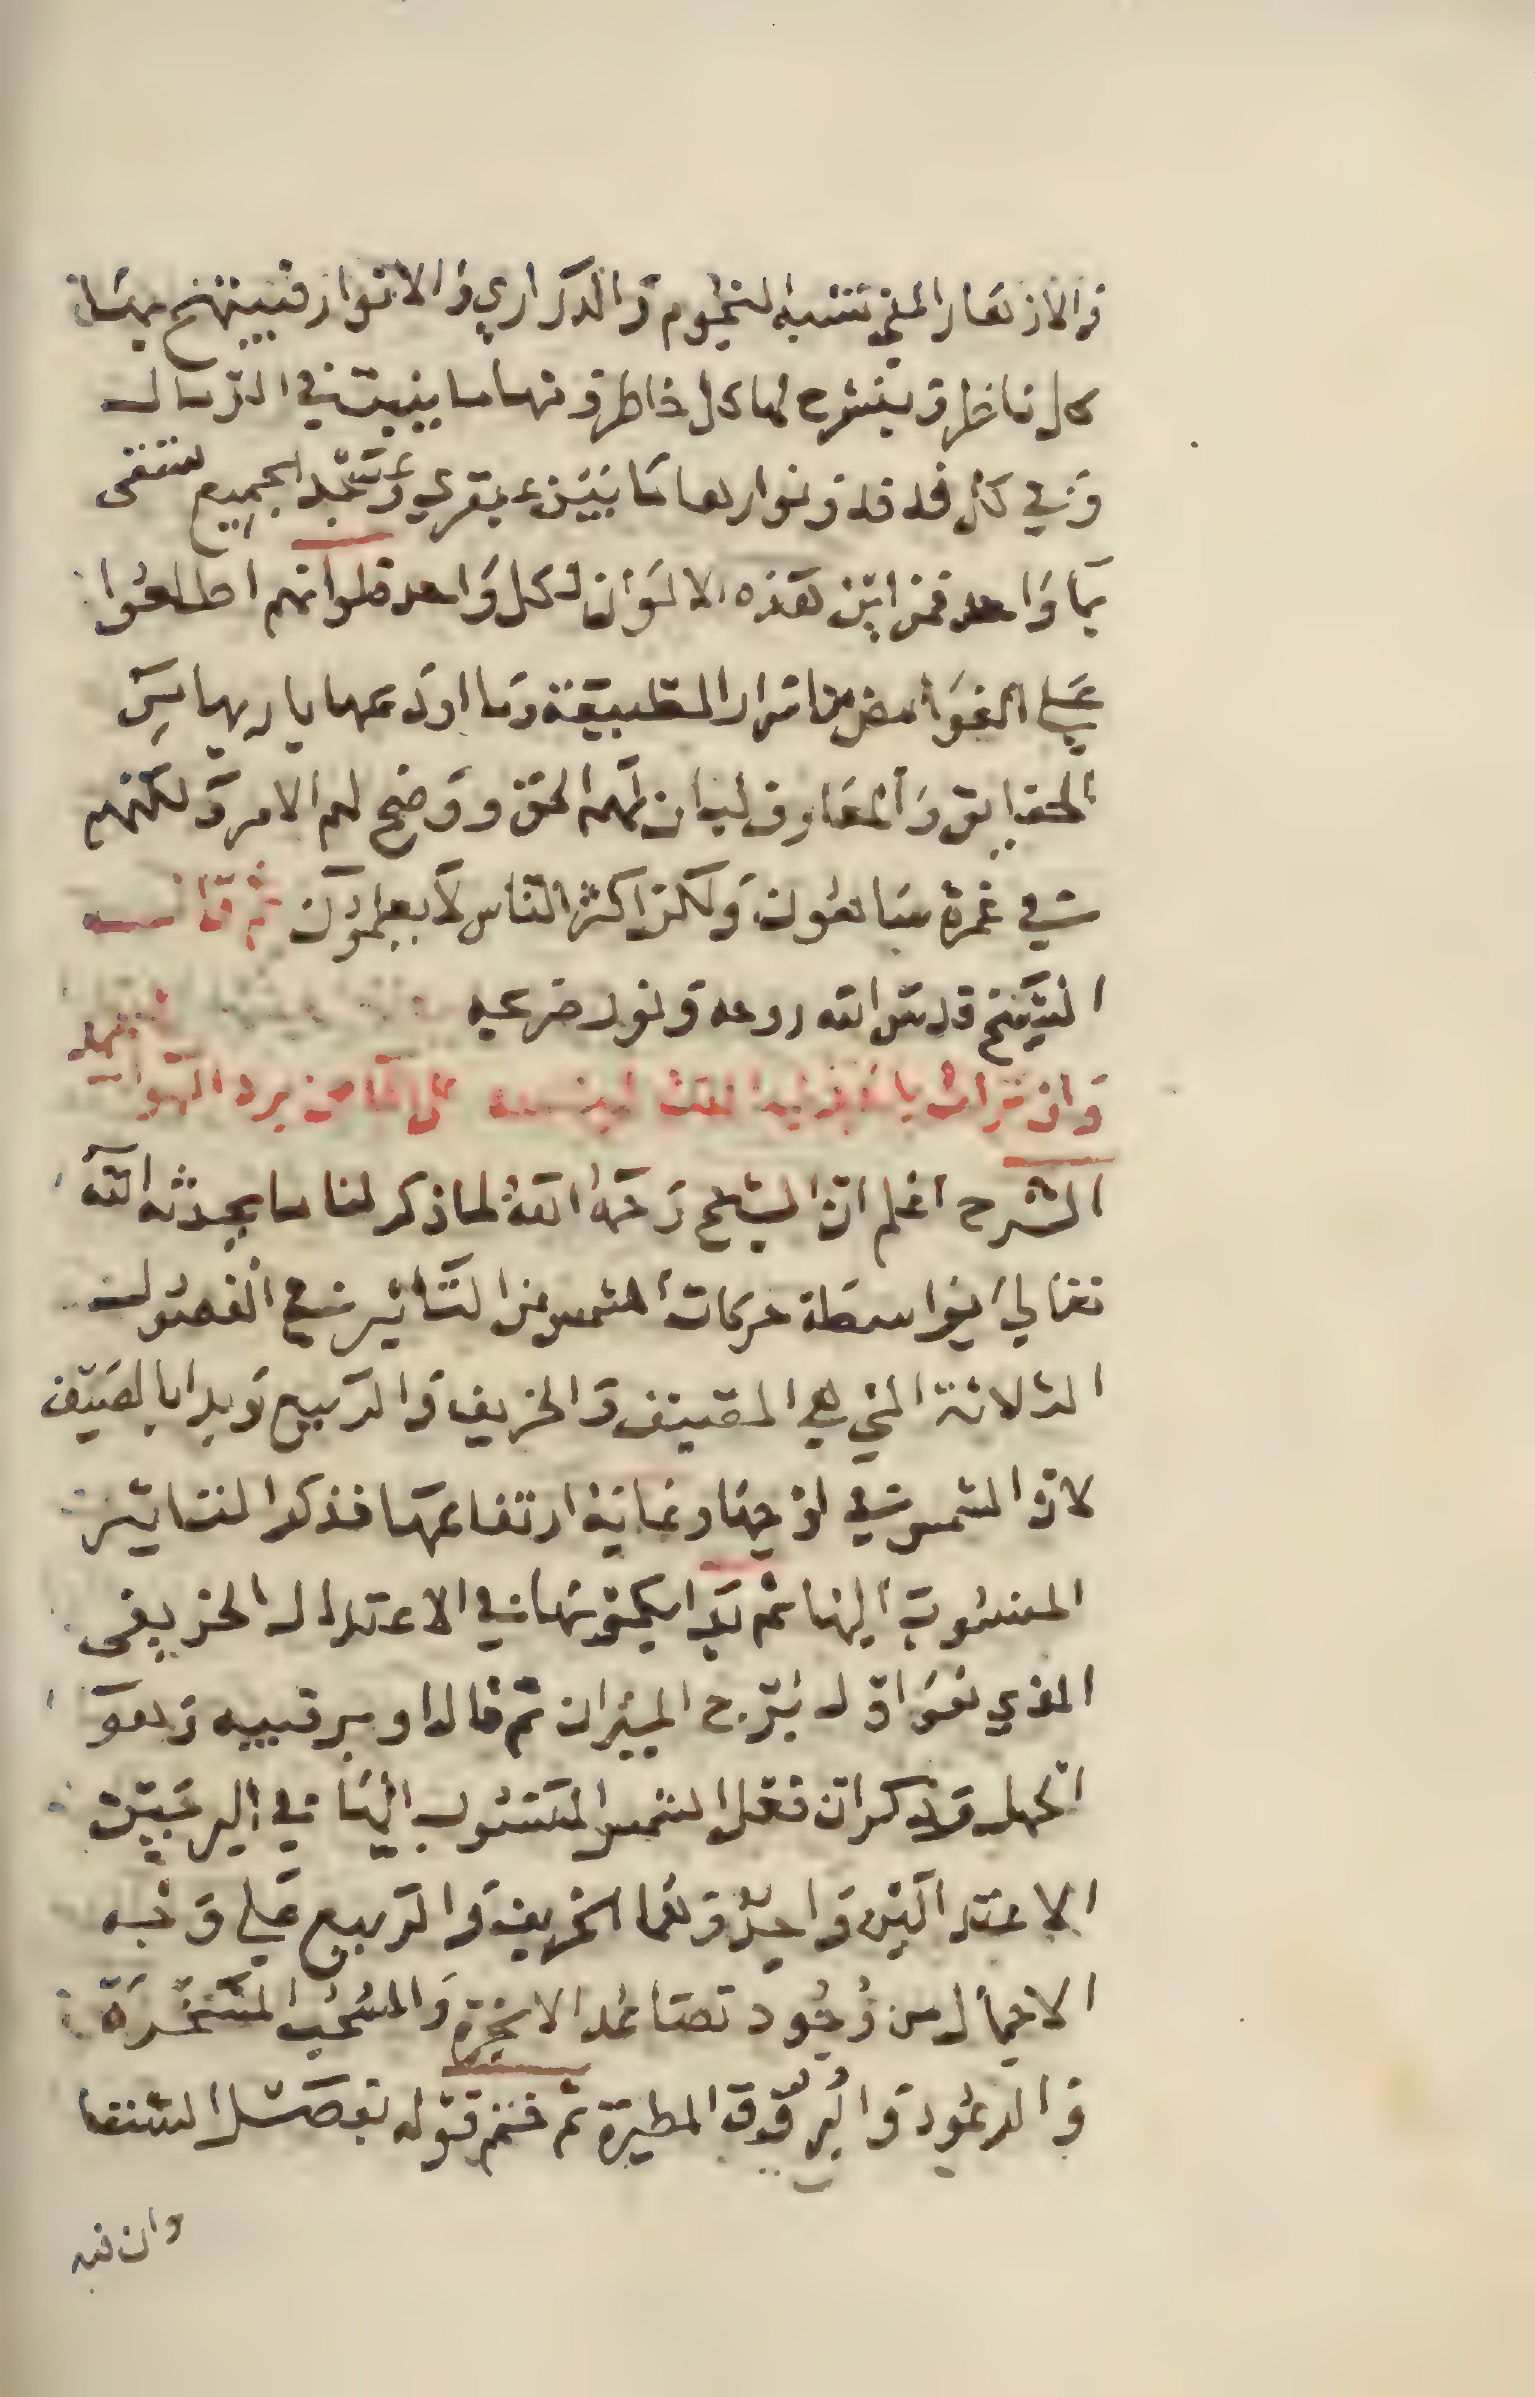 والازهار التي تشبه النجوم والدراري والانوار فيبتهج بها
كل ناظر وينشرح لها كل خاطر ومنها ما ينبت في الرمال
وفي كل فدفد ونوارها كما بين عبقري وعسجد الجميع يسقى
بماء واحد فمن اين هذه الالوان لكل واحد فلو انهم اطلعوا
على الغوامض من اسرار الطبيعة وما اودعها باريها من
الحقايق والمعارف لبان لهم الحق ووضح لهم الامر ولكنهم
في غمرة ساهون ولكن اكثر الناس لا يعلمون ثم قال
الشيخ قدس الله روحه ونور ضريحه
وان برد الهوا
الشرح اعلم ان الشيخ رحمه الله لما ذكر لنا ما يحدثه الله
تعالى بواسطة حركات الشمس من التاثير في الفصول
الثلاثة التي هي الصيف والخريف والربيع وبدا بالصيف
لان الشمس في اوجها وغاية ارتفاعها فذكر التاثير
المنسوب اليها ثم بدا بكونها في الاعتدال الخريفى
الذي هو اول برج الميزان ثم قال او برقيبه وهو
الحمل وذكر ان فعل الشمس المنسوب اليها في البرجين
الاعتدالين واحد وهما الخريف والربيع على وجه
الاجمال من وجود تصاعد الابخرة والسحب المسخرة
والرعود والبروق المطيرة ثم ختم قوله بفصل الشتا
وان فيه